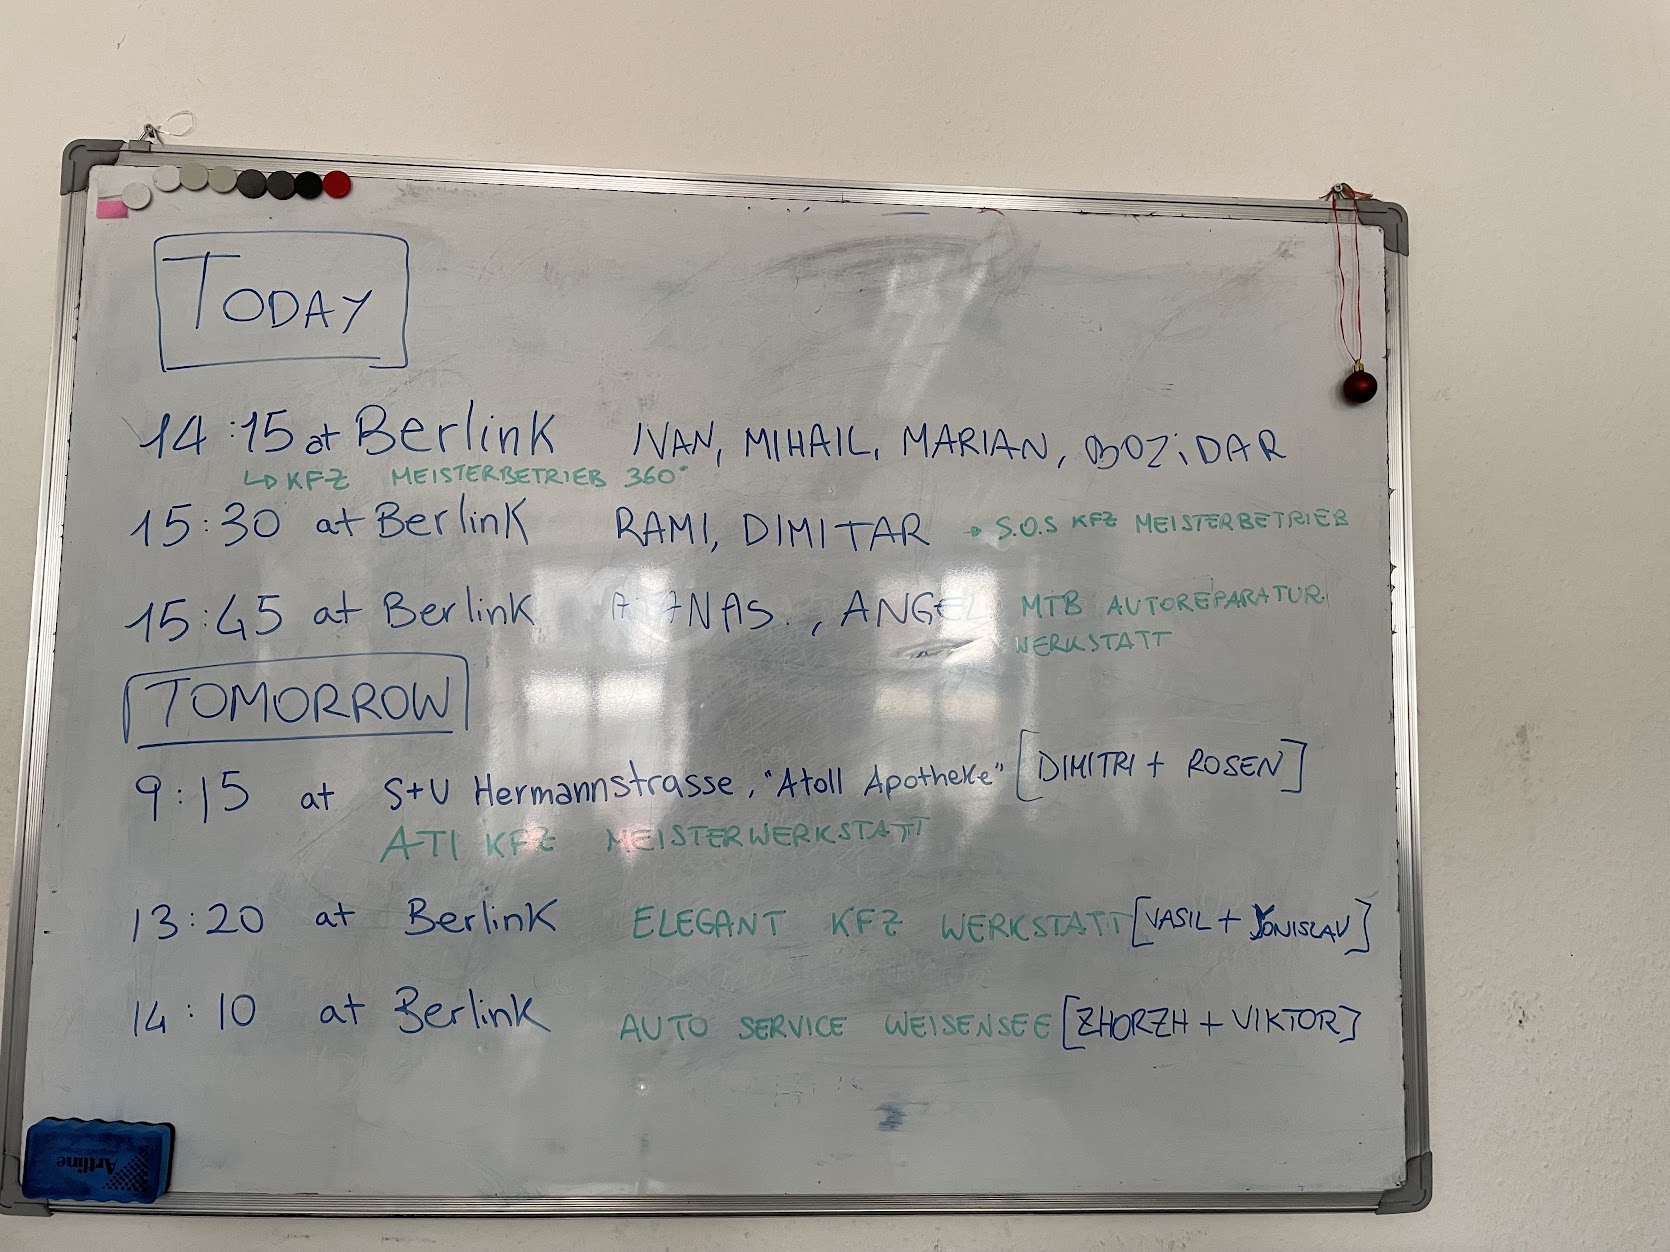 TODAY
14:15 at Berlink IVAN, MIHAIL, MARIAN, BOZiDAR
↳ KFZ MEISTERBETRIEB 360°
15:30 at Berlink RAMI, DIMITAR → S.O.S KFZ MEISTERBETRIEB
15:45 at Berlink ATANAS., ANGEL MTB AUTOREPARATUR
WERKSTATT
TOMORROW
9:15 at S+U Hermannstrasse, "Atoll Apotheke" [DIMITRI + ROSEN]
ATI KFZ MEISTERWERKSTATT
13:20 at Berlink ELEGANT KFZ WERKSTATT [VASIL + YONISLAV]
14:10 at Berlink AUTO SERVICE WEISENSEE [ZHORZH + VIKTOR]
Artline